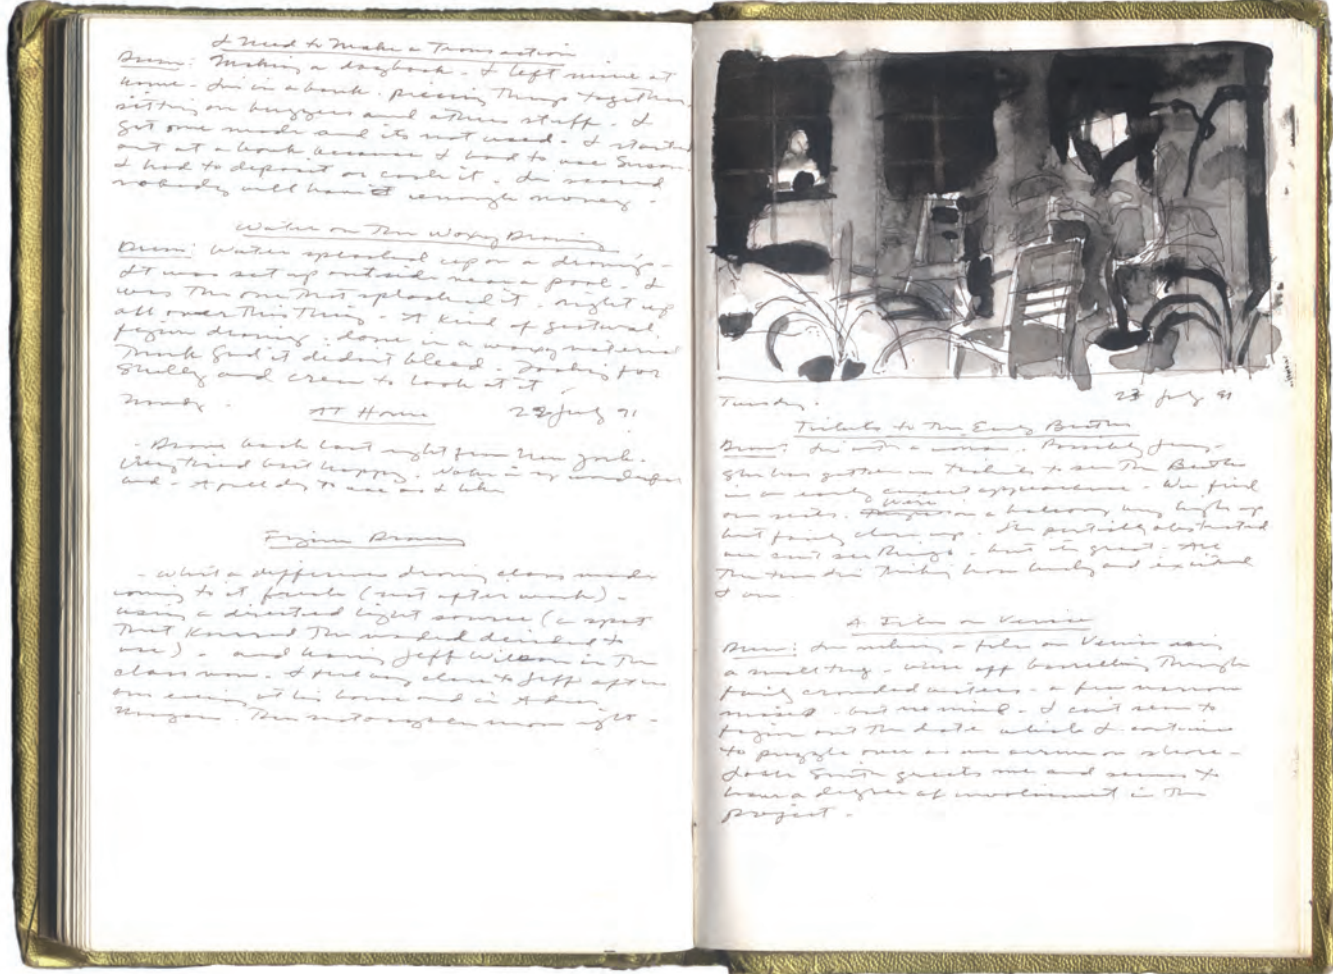 I Need to Make a Transaction
Dream: Making a daybook - I left mine at
home - I'm in a bank. piecing things together,
sitting on buggers and other stuff - I
get one made and its not used - I started
out at a bank because I had to use Susan
I had to deposit or cash it - I'm scared
nobody will have enough money -
Water on The Waxy Drawing
Dream: Water splashed up on a drawing -
It was set up outside near a pool - I
was the one that splashed it - right up
all over this thing - A kind of gestural
figure drawing - done in a waxy material
Thank God it dedn't bleed - Looking for
Shelly and crew to look at it
Monday. AT Home 22 July 91
- Drove back last night from New York -
Very tired but happy.
and - A full day to use as I like
Figure Drawing
- What a difference drawing class made
coming to it fresh (not after work) -
using a directed light source (a spot
That the model decided to
use) - and having Jeff Wilson in The
class now - I feel very close to Jeff after
our evening at his home and in
The now right -
Tuesday. 23 July 91
Tribute to The Early Beatles
Dream: I'm with a woman. Possibly
She has gotten us tickets to see The Beatles
in an early concert appearance - We find
our seats. We're in a balcony very high up
but fairly close up - I'm partially obstructed
and can't see things - but it's great - All
The time I'm Thinking how lucky and excited
I am
A Film on Venice
Dream: I'm making a film on Venice using
a small tug - we're off barrelling through
fairly crowded waters - a few narrow
misses - but no mind - I can't seem to
figure out The date which I continue
to puzzle over as we arrive on shore -
Smith greets me and seems to
have a degree of involvement in This
project -